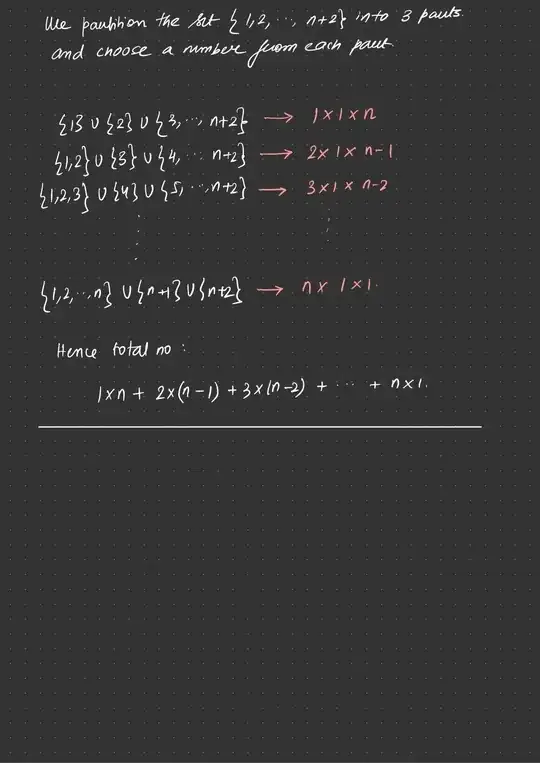 We partition the set {1,2, ··, n+2} into 3 parts.
and choose a number from each part.
{1} ∪ {2} ∪ {3, ··, n+2} → 1 × 1 × n
{1,2} ∪ {3} ∪ {4, ·· n+2} → 2 × 1 × n-1
{1,2,3} ∪ {4} ∪ {5, ··, n+2} → 3 × 1 × n-2
{1,2, ··, n} ∪ {n+1} ∪ {n+2} → n × 1 × 1.
Hence total no :
1×n + 2×(n-1) + 3×(n-2) + ··· + n×1.